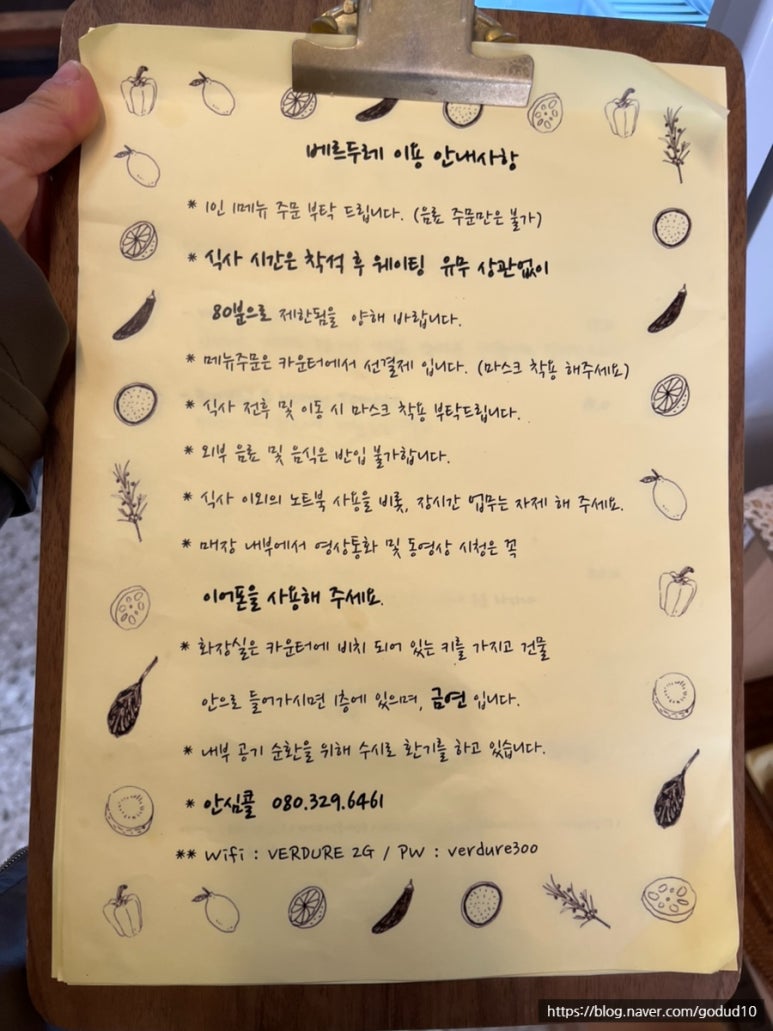 베르두레 이용 안내사항
* 1인 1메뉴 주문 부탁 드립니다. (음료 주문만은 불가)
* 식사 시간은 착석 후 웨이팅 유무 상관없이
80분으로 제한됨을 양해 바랍니다.
* 메뉴주문은 카운터에서 선결제 입니다. (마스크 착용 해주세요)
* 식사 전후 및 이동 시 마스크 착용 부탁드립니다.
* 외부 음료 및 음식은 반입 불가합니다.
* 식사 이외의 노트북 사용을 비롯, 장시간 업무는 자제 해 주세요.
* 매장 내부에서 영상통화 및 동영상 시청은 꼭
이어폰을 사용해 주세요.
* 화장실은 카운터에 비치 되어 있는 키를 가지고 건물
안으로 들어가시면 1층에 있으며, 금연 입니다.
* 내부 공기 순환을 위해 수시로 환기를 하고 있습니다.
* 안심콜 080.329.6461
** Wifi : VERDURE 2G / PW : verdure300
https://blog.naver.com/godud10